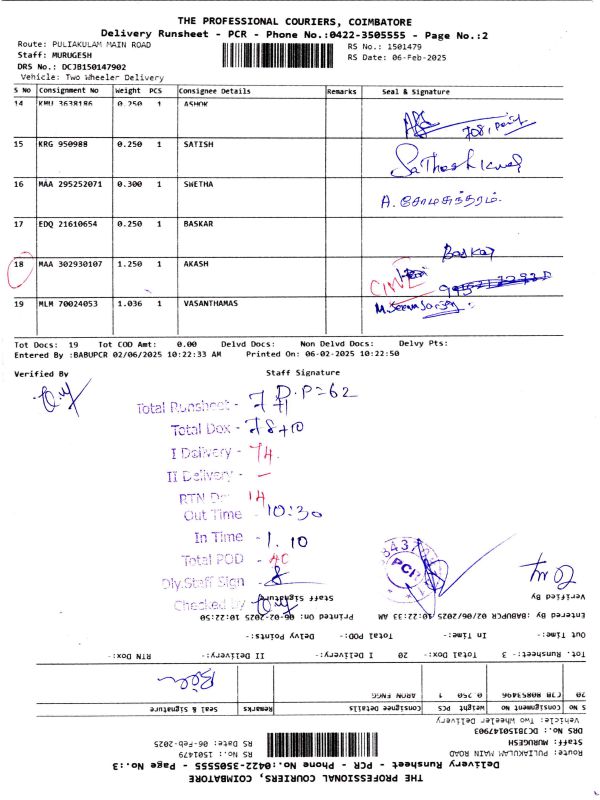 THE PROFESSIONAL COURIERS, COIMBATORE
Delivery Runsheet - PCR - Phone No.:0422-3505555 - Page No.:2
Route: PULIAKULAM MAIN ROAD
RS No.: 1501479
Staff: MURUGESH
RS Date: 06-Feb-2025
DRS No.: DCJB150147902
Vehicle: Two Wheeler Delivery
S No Consignment No Weight PCS Consignee Details Remarks Seal & Signature
14 KMU 3638186 0.250 1 ASHOK
15 KRG 950988 0.250 1 SATISH
16 MAA 295252071 0.300 1 SWETHA
A. சோமசுந்தரம்.
17 EDQ 21610654 0.250 1 BASKAR
Baskar
18 MAA 302930107 1.250 1 AKASH
19 MLM 70024053 1.036 1 VASANTHAMAS
Tot Docs: 19 Tot COD Amt: 0.00 Delvd Docs: Non Delvd Docs: Delvy Pts:
Entered By :BABUPCR 02/06/2025 10:22:33 AM Printed On: 06-02-2025 10:22:50
Verified By Staff Signature
D.P=62
Total Runsheet -
Total Dox - 78+10
I Delivery - 74.
II Delivery - -
RTN 14
Out Time - 10:30
In Time - 1.10
Total POD - 40
Dly.Staff Sign -
Checked by
PCR
Staff Signature
Verified By
Entered By :BABUPCR 02/06/2025 10:22:33 AM Printed On: 06-02-2025 10:22:50
Out Time:- In Time:- Total POD:- Delvy Points:-
Tot. Runsheet:- 3 Total Dox:- 20 I Delivery:- II Delivery:- RTN Dox:-
20 CJB 80853496 0.250 1 ARON ENGG
S No Consignment No Weight PCS Consignee Details Remarks Seal & Signature
Vehicle: Two Wheeler Delivery
DRS No.: DCJB150147903
Staff: MURUGESH
RS Date: 06-Feb-2025
Route: PULIAKULAM MAIN ROAD
RS No.: 1501479
Delivery Runsheet - PCR - Phone No.:0422-3505555 - Page No.:3
THE PROFESSIONAL COURIERS, COIMBATORE